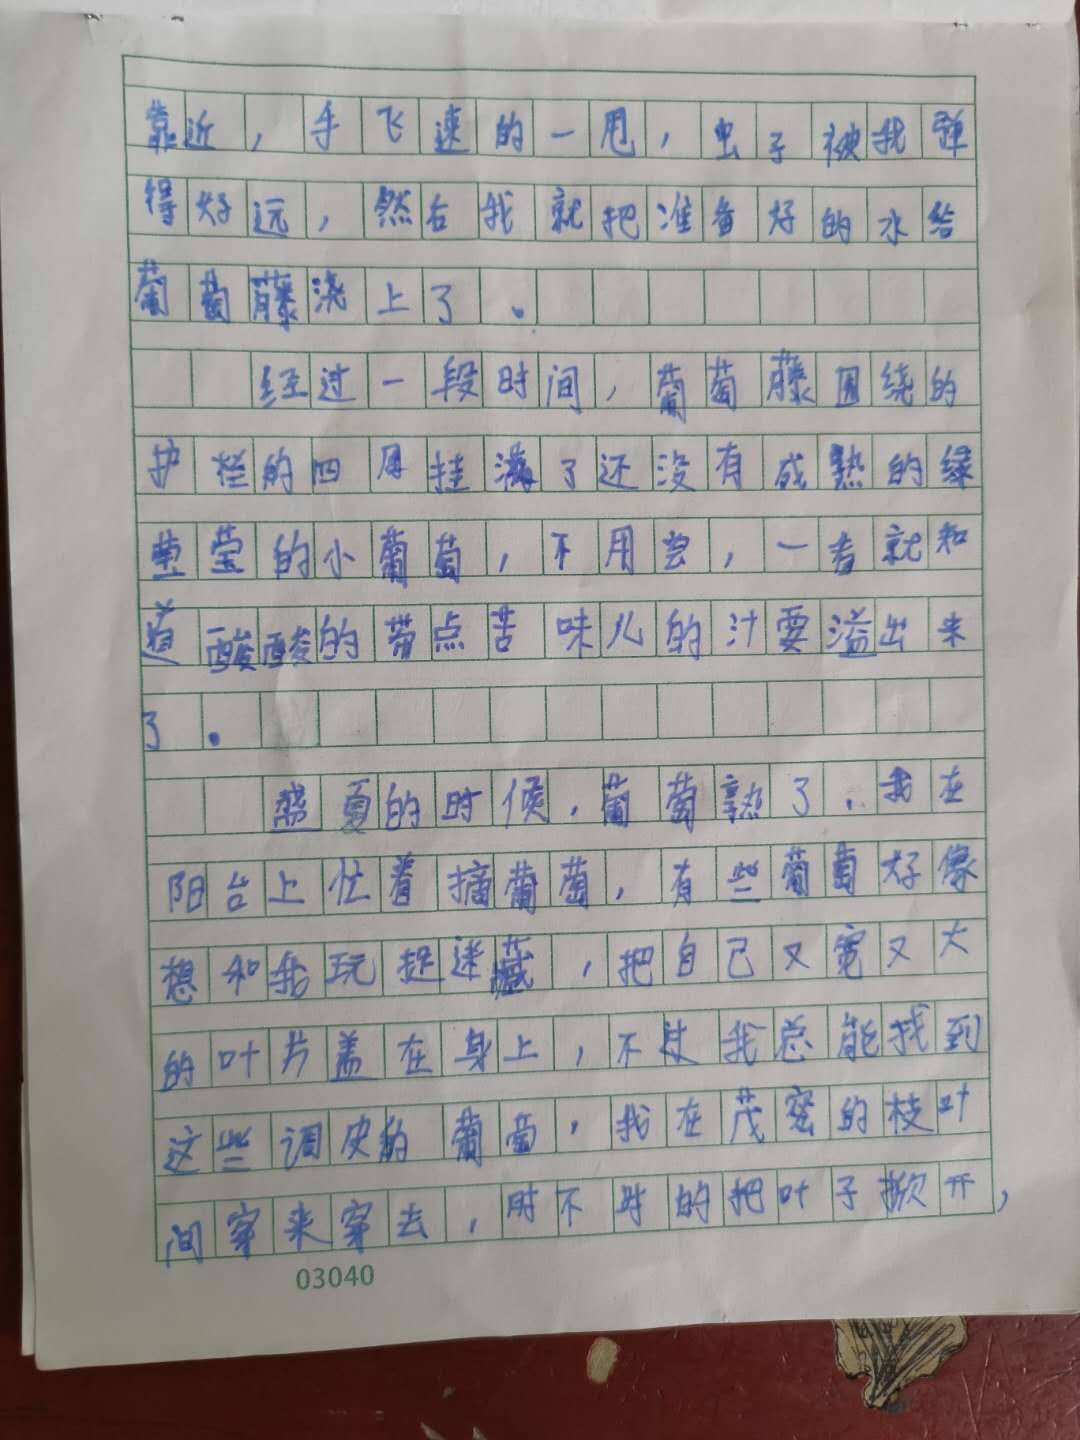 靠近，手飞速的一甩，虫子被我弹
得好远，然右我就把准备好的水给
葡萄藤浇上了。
经过一段时间，葡萄藤围绕的
护栏的四周挂满了还没有成熟的绿
莹莹的小葡萄，不用尝，一看就知
道酸酸的带点苦味儿的汁要溢出来
了。
盛夏的时候，葡萄熟了，我在
阳台上忙着摘葡萄，有些葡萄好像
想和我玩捉迷藏，把自己又宽又大
的叶片盖在身上，不过我总能找到
这些调皮的葡萄，我在茂密的枝叶
间穿来穿去，时不时的把叶子掀开，
03040